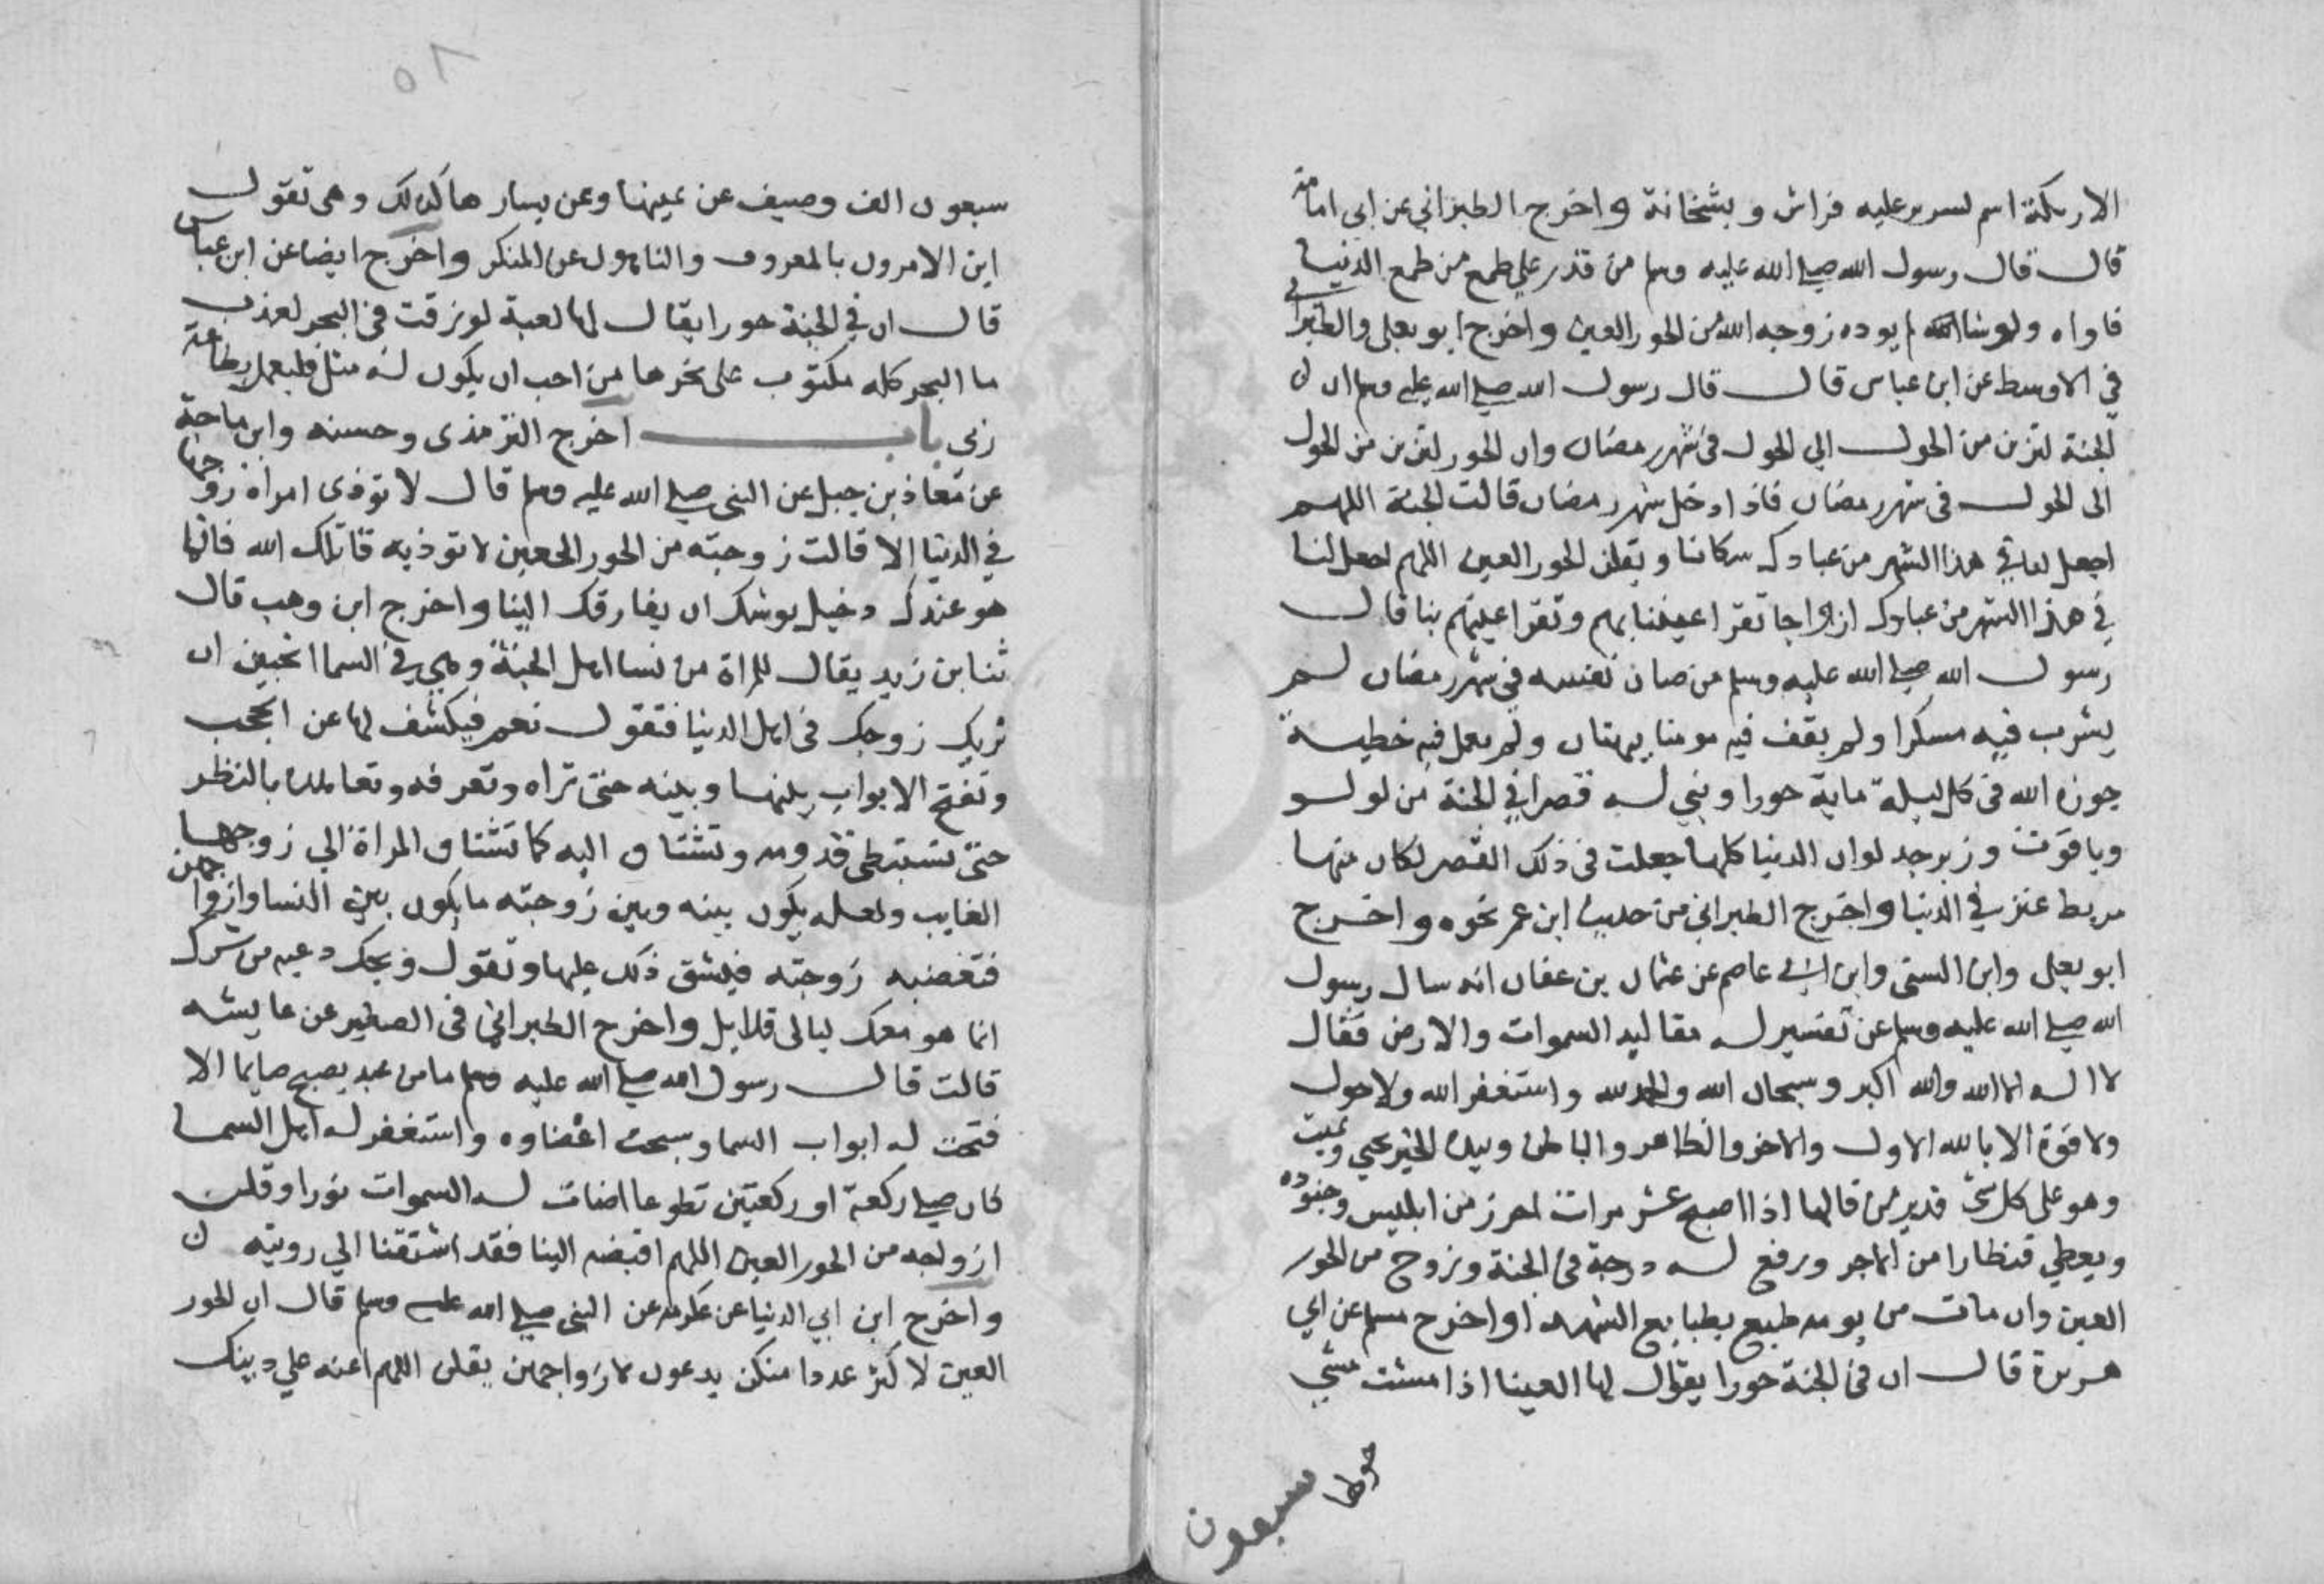 الاريكة اسم لسرير عليه فراش وبشخانة واخرج الطبراني عن ابي امامة
قال قال رسول الله صلي الله عليه وسلم من قدر علي طمع من طمع الدنيا
فاداه ولو شا لم يوده زوجه الله من الحور العين واخرج ابو يعلي والطبراني
في الاوسط عن ابن عباس قال قال رسول الله صلي الله عليه وسلم ان
الجنة لتزين من الحول الي الحول في شهر رمضان وان الحور لتزين من الحول
الى الحول في شهر رمضان فاذا دخل شهر رمضان قالت الجنة اللهم
اجعل لنا في هذا الشهر من عبادك سكانا ويقلن الحور العين اللهم اجعل لنا
في هذا الشهر من عبادك ازواجا تقر اعيننا بهم وتقر اعينهم بنا قال
رسول الله صلي الله عليه وسلم من صان نفسه في شهر رمضان لم
يشرب فيه مسكرا ولم يقف فيه مومنا ببهتان ولم يعمل فيه خطيية
جوزه الله في كل ليلة ماية حورا وبني له قصرا في الجنة من لولو
وياقوت وزبرجد لوان الدنيا كلها جعلت في ذلك القصر لكان منها
مربط عنز في الدنيا واخرج الطبراني من حديث ابن عمر نحوه واخرج
ابو يعلي وابن السني وابن ابي عاصم عن عثمان بن عفان انه سال رسول
الله صلي الله عليه وسلم عن تفسير له مقاليد السموات والارض فقال
لا اله الا الله والله اكبر وسبحان الله والحمد لله واستغفر الله ولا حول
ولا قوة الا بالله الاول والاخر والظاهر والباطن وبيده الخير يحيي ويميت
وهو على كل شئ قدير من قالها اذا اصبح عشر مرات احرز من ابليس وجنوده
ويعطي قنطارا من الاجر ورفع له درجة في الجنة وزوج من الحور
العين وان مات من يومه طبع بطابع الشهدا واخرج مسلم عن ابي
هريرة قال ان في الجنة حورا يقال لها العينا اذا مشت مشي
حولها
سبعون
سبعون الف وصيف عن يمينها وعن يسارها كذلك وهي تقول
اين الامرون بالمعروف والناهون عن المنكر واخرج ايضا عن ابن عباس
قال ان في الجنة حورا يقال لها لعبة لو بزقت في البحر لعذب
ما البحر كله مكتوب على نحرها من احب ان يكون له مثلي فليعمل بطاعة
ربي باب اخرج الترمذي وحسنه وابن ماجة
عن معاذ بن جبل عن النبي صلي الله عليه وسلم قال لا توذي امراة زوجها
في الدنيا الا قالت زوجته من الحور العين لا توذيه قاتلك الله فانما
هو عندك دخيل يوشك ان يفارقك الينا واخرج ابن وهب قال
ثنا ابن زيد يقال للمراة من نسا اهل الجنة وهي في السما اتحبين ان
نريك زوجك في اهل الدنيا فتقول نعم فيكشف لها عن الحجب
وتفتح الابواب بينها وبينه حتى تراه وتعرفه وتعاهده بالنظر
حتى تستبطي قدومه وتشتاق اليه كما تشتاق المراة الي زوجها
الغايب ولعله يكون بينه وبين زوجته ما يكون بين النسا وازواجهن
فتغضبه زوجته فيشق ذلك عليها وتقول ويحك دعيه من شرك
انما هو معك ليالي قلايل واخرج الطبراني في الصغير عن عايشه
قالت قال رسول الله صلي الله عليه وسلم ما من عبد يصبح صايما الا
فتحت له ابواب السما وسبحت اعضاوه واستغفر له اهل السما
فان صلي ركعة او ركعتين تطوعا اضات له السموات نورا وقلن
ازواجه من الحور العين اللهم اقبضه الينا فقد اشتقنا الي رويته
واخرج ابن ابي الدنيا عن عكرمه عن النبي صلي الله عليه وسلم قال ان الحور
العين لاكثر عددا منكن يدعون لازواجهن يقلن اللهم اعنه علي دينك